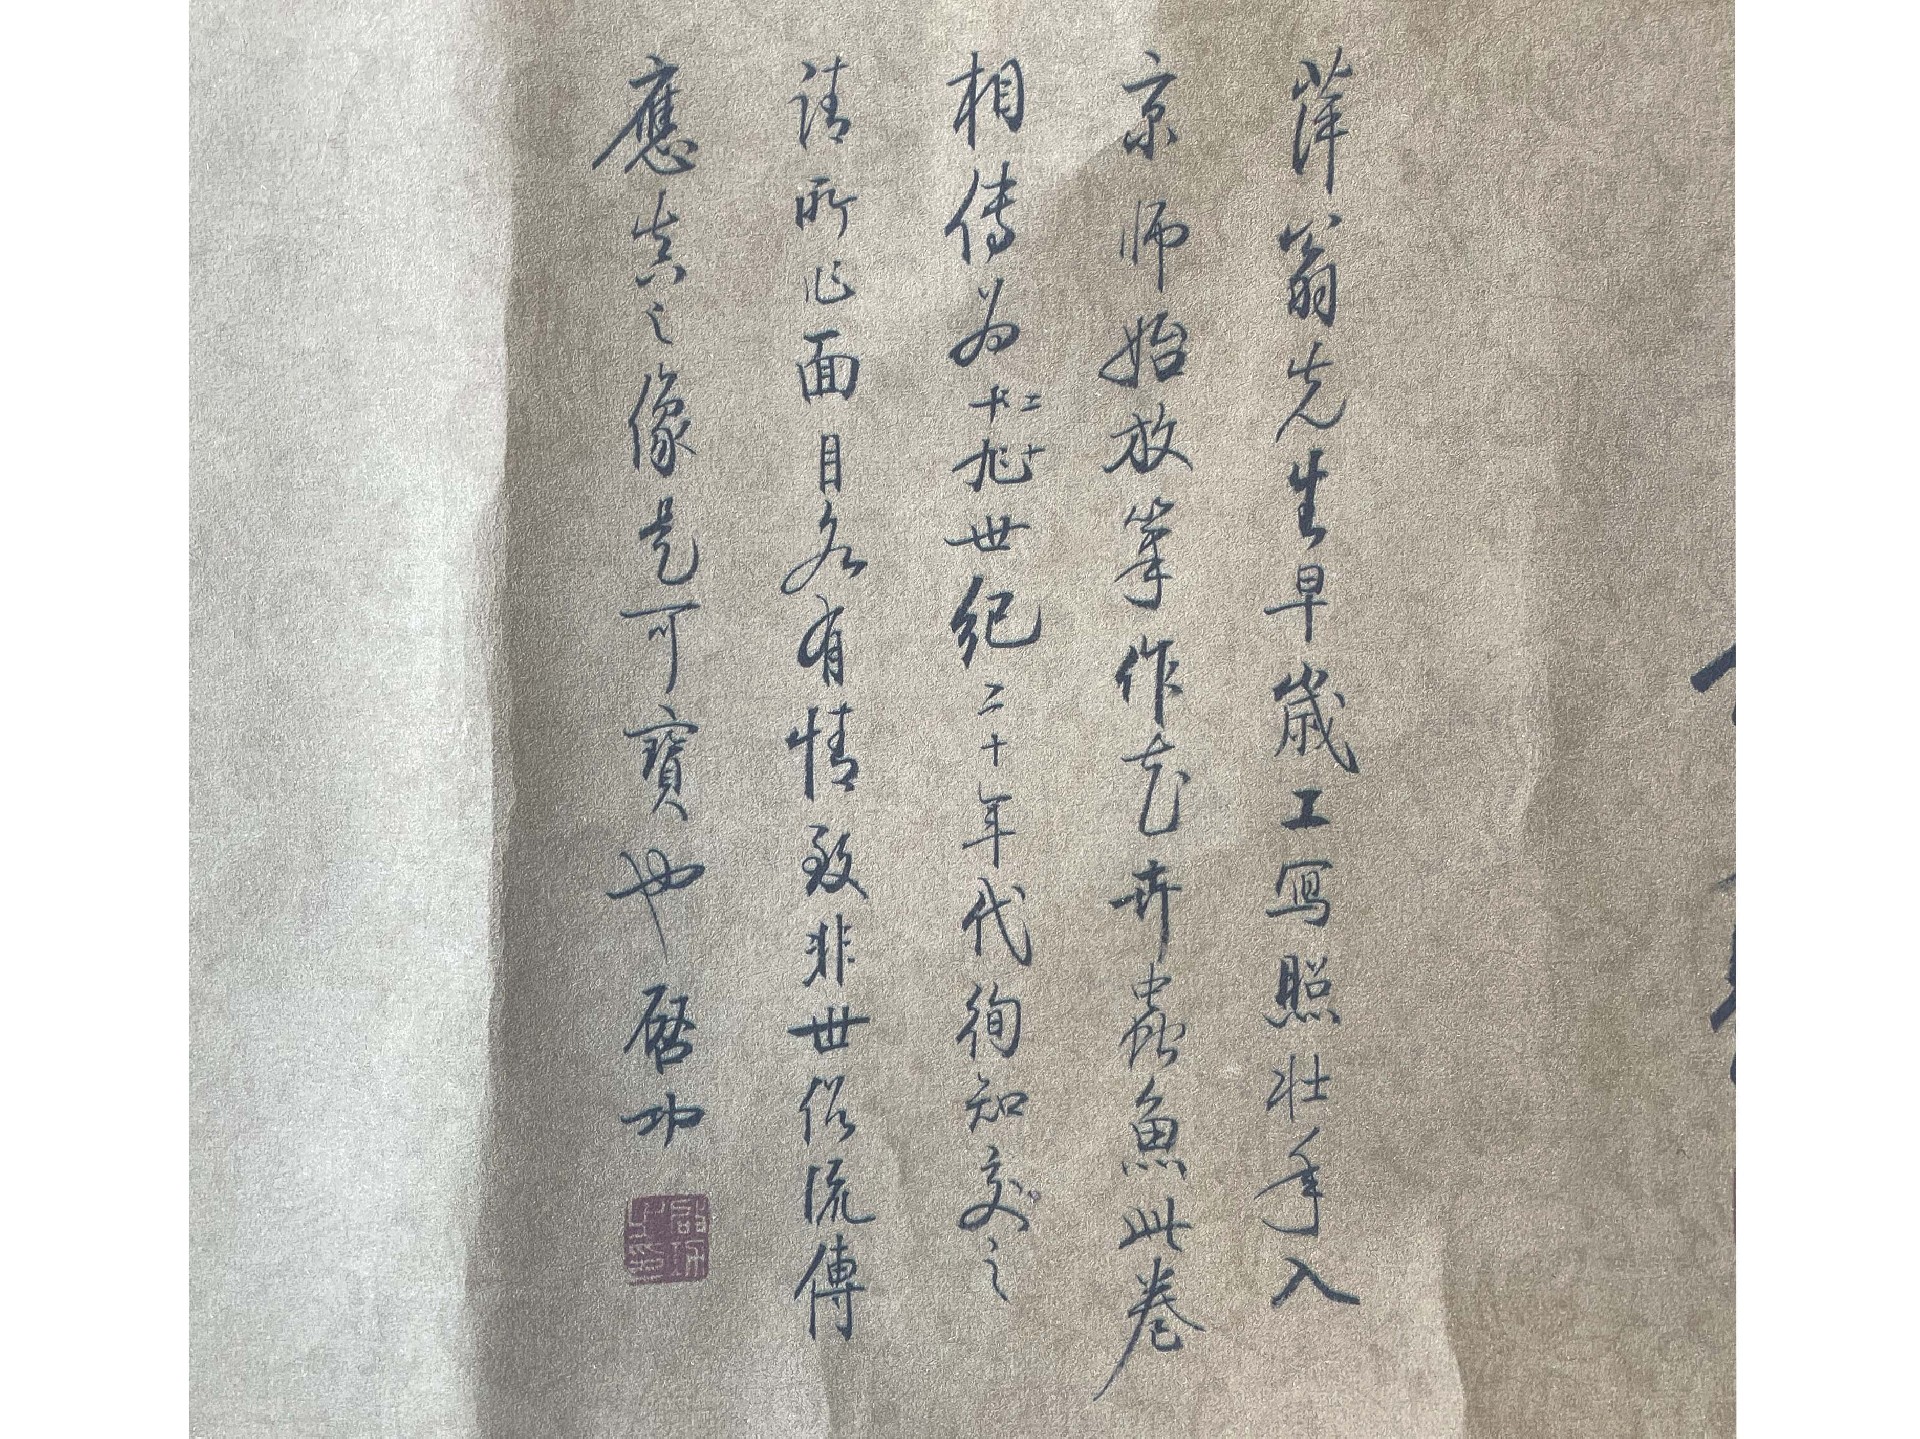 萍翁先生早歲工寫照壮年入
京師始放筆作花卉蟲魚此卷
相傳為十九二十世紀二十年代徇知交之
請所作面目各有情致非世俗流傳
應真之像是可寶也啓功
啟功之印